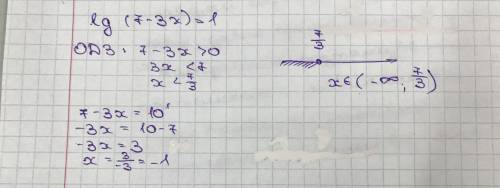 lg (7-3x)=1
ОДЗ: 7-3x>0
3x <7
x < 7/3
7/3
x∈(-∞; 7/3)
7-3x = 10¹
-3x = 10-7
-3x = 3
x = 3/-3 = -1